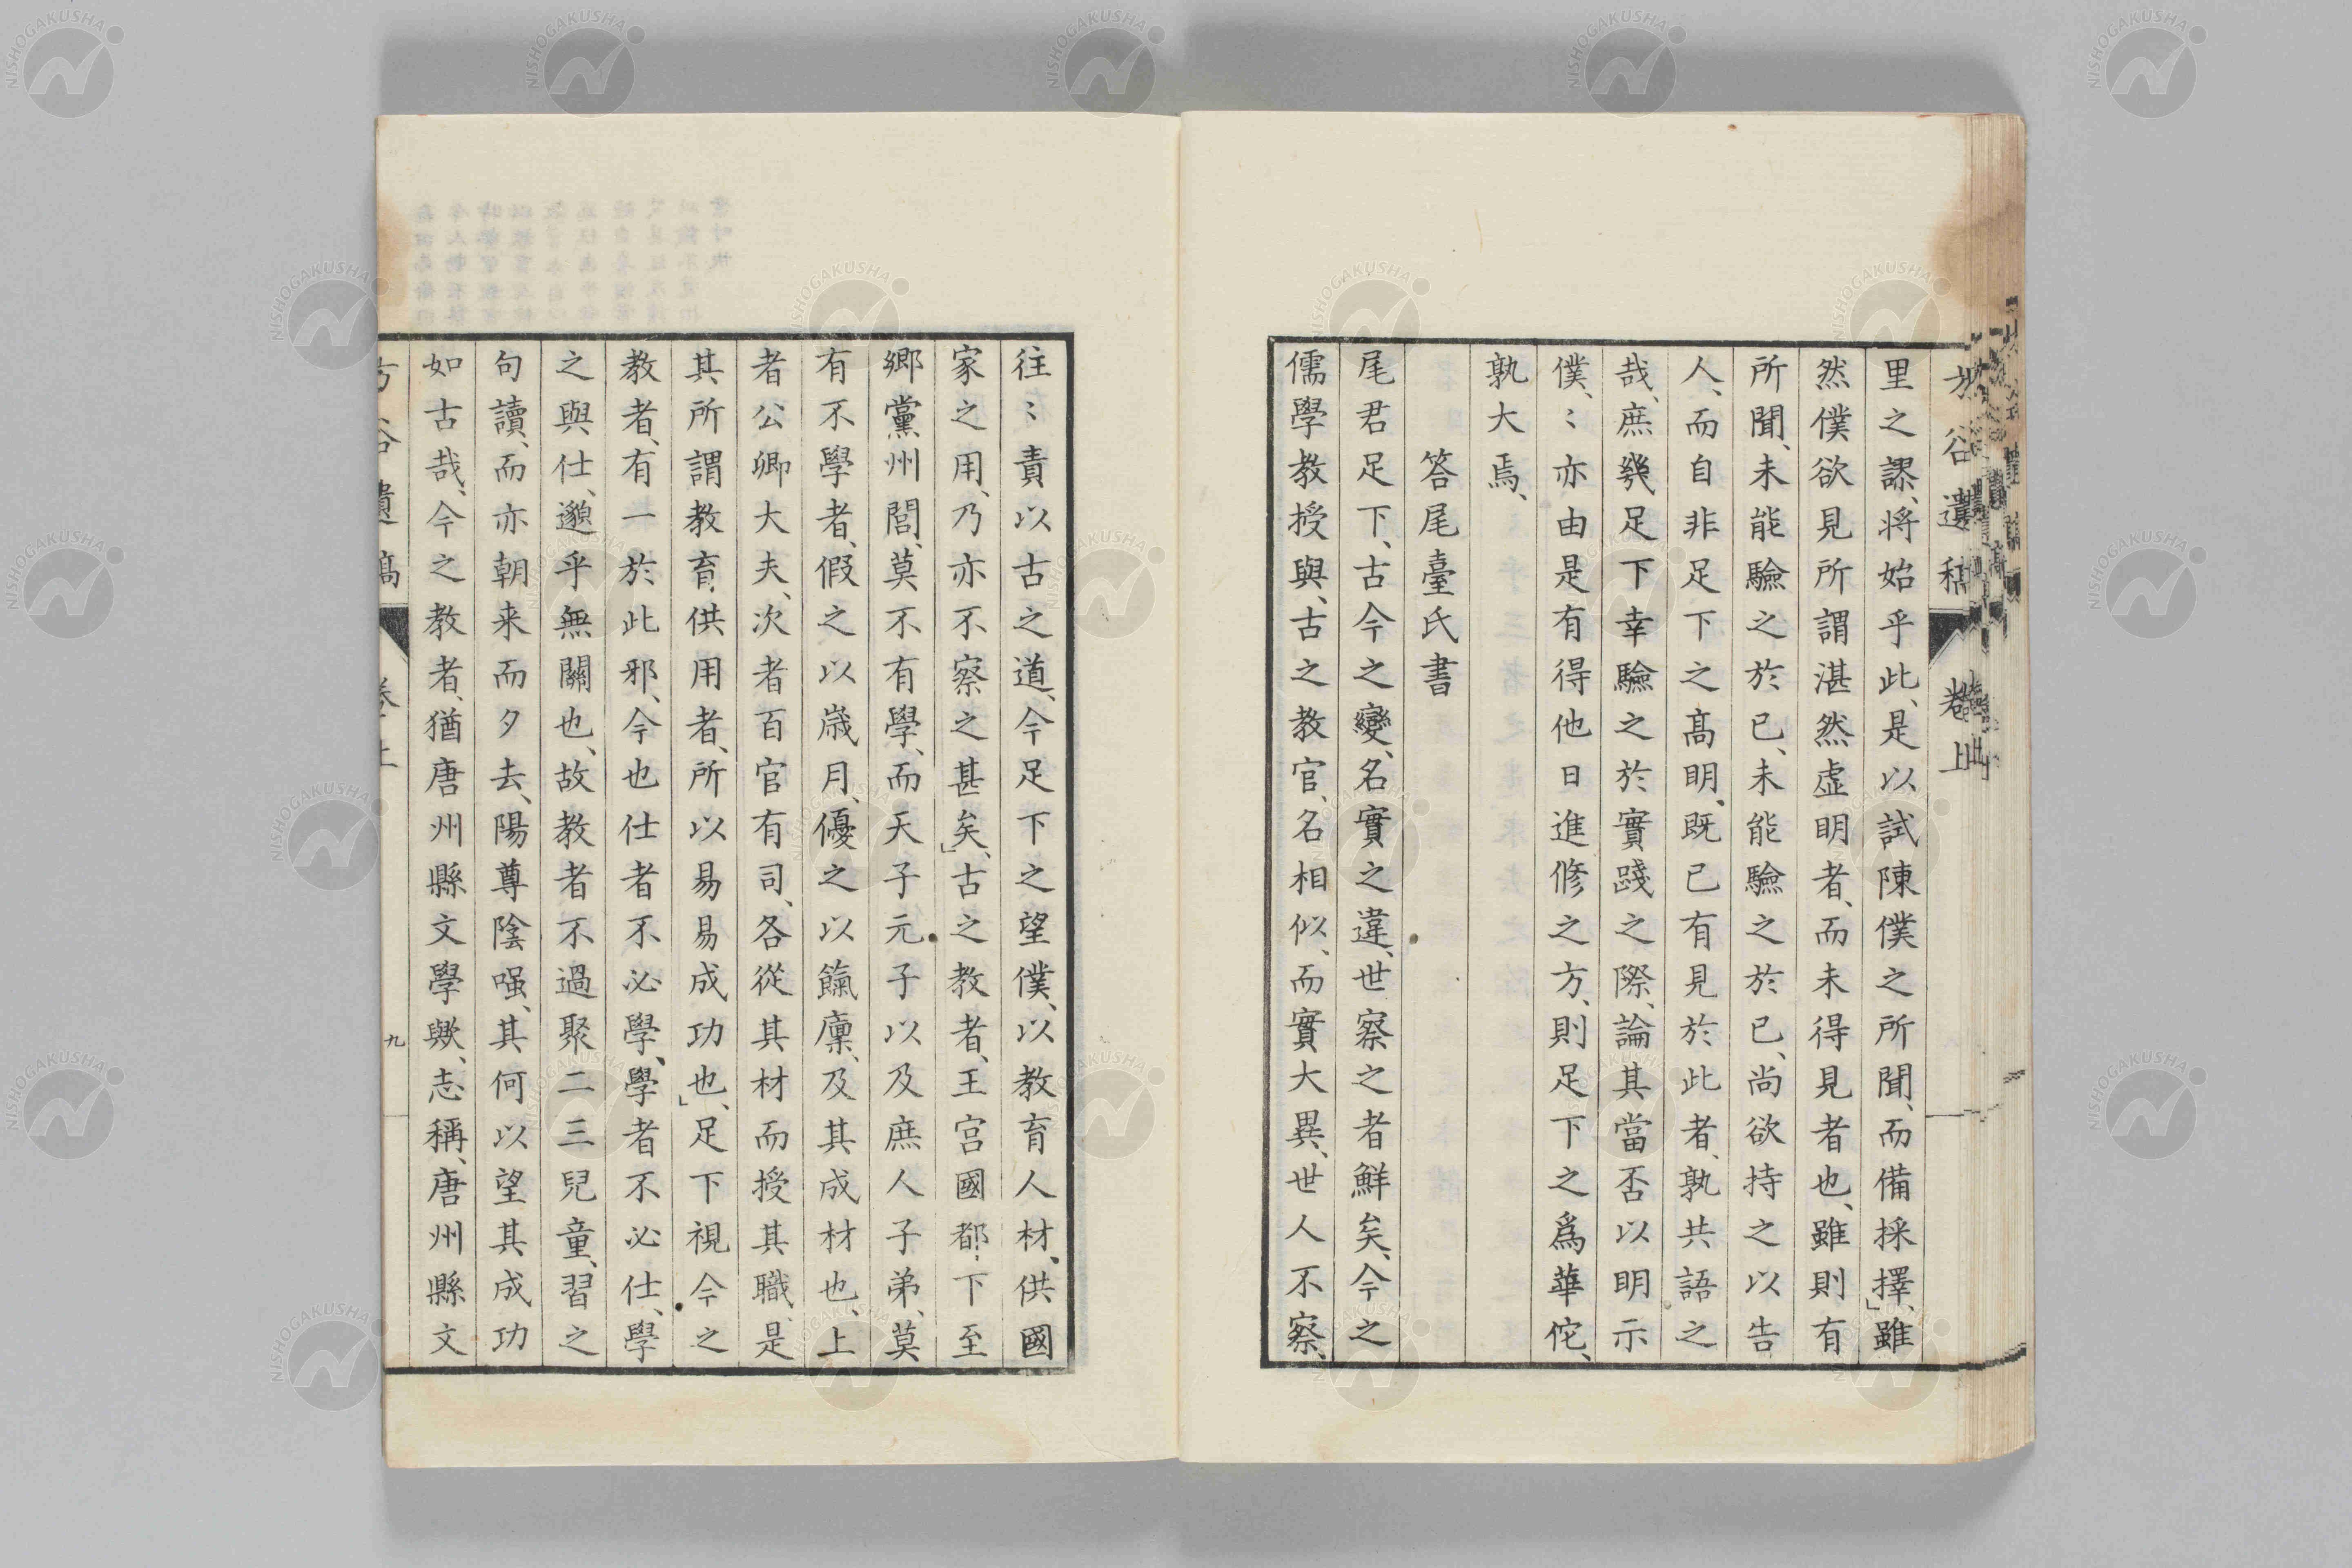 方谷遺稿 卷上
里之謬、將始乎此、是以試陳僕之所聞、而備採擇、」雖
然僕欲見所謂湛然虛明者、而未得見者也、雖則有
所聞、未能驗之於已、未能驗之於已、尚欲持之以告
人、而自非足下之高明、既已有見於此者、孰共語之
哉、庶幾足下幸驗之於實踐之際、論其當否以明示
僕、〻亦由是有得他日進修之方、則足下之爲華佗、
孰大焉、
答尾臺氏書
尾君足下、古今之變、名實之違、世察之者鮮矣、今之
儒學教授與、古之教官、名相似、而實大異、世人不察、
往〻責以古之道、今足下之望僕、以教育人材、供國
家之用、乃亦不察之甚矣、」古之教者、王宮國都、下至
鄉黨州閭、莫不有學、而天子元子以及庶人子弟、莫
有不學者、假之以歲月、優之以餼廩、及其成材也、上
者公卿大夫、次者百官有司、各從其材而授其職、是
其所謂教育、供用者、所以易易成功也、」足下視今之
教者、有一於此邪、今也仕者不必學、學者不必仕、學
之與仕、邈乎無關也、故教者不過聚二三兒童、習之
句讀、而亦朝来而夕去、陽尊陰嗤、其何以望其成功
如古哉、今之教者、猶唐州縣文學歟、志稱、唐州縣文
方谷遺稿 卷上 九
NISHOGAKUSHA